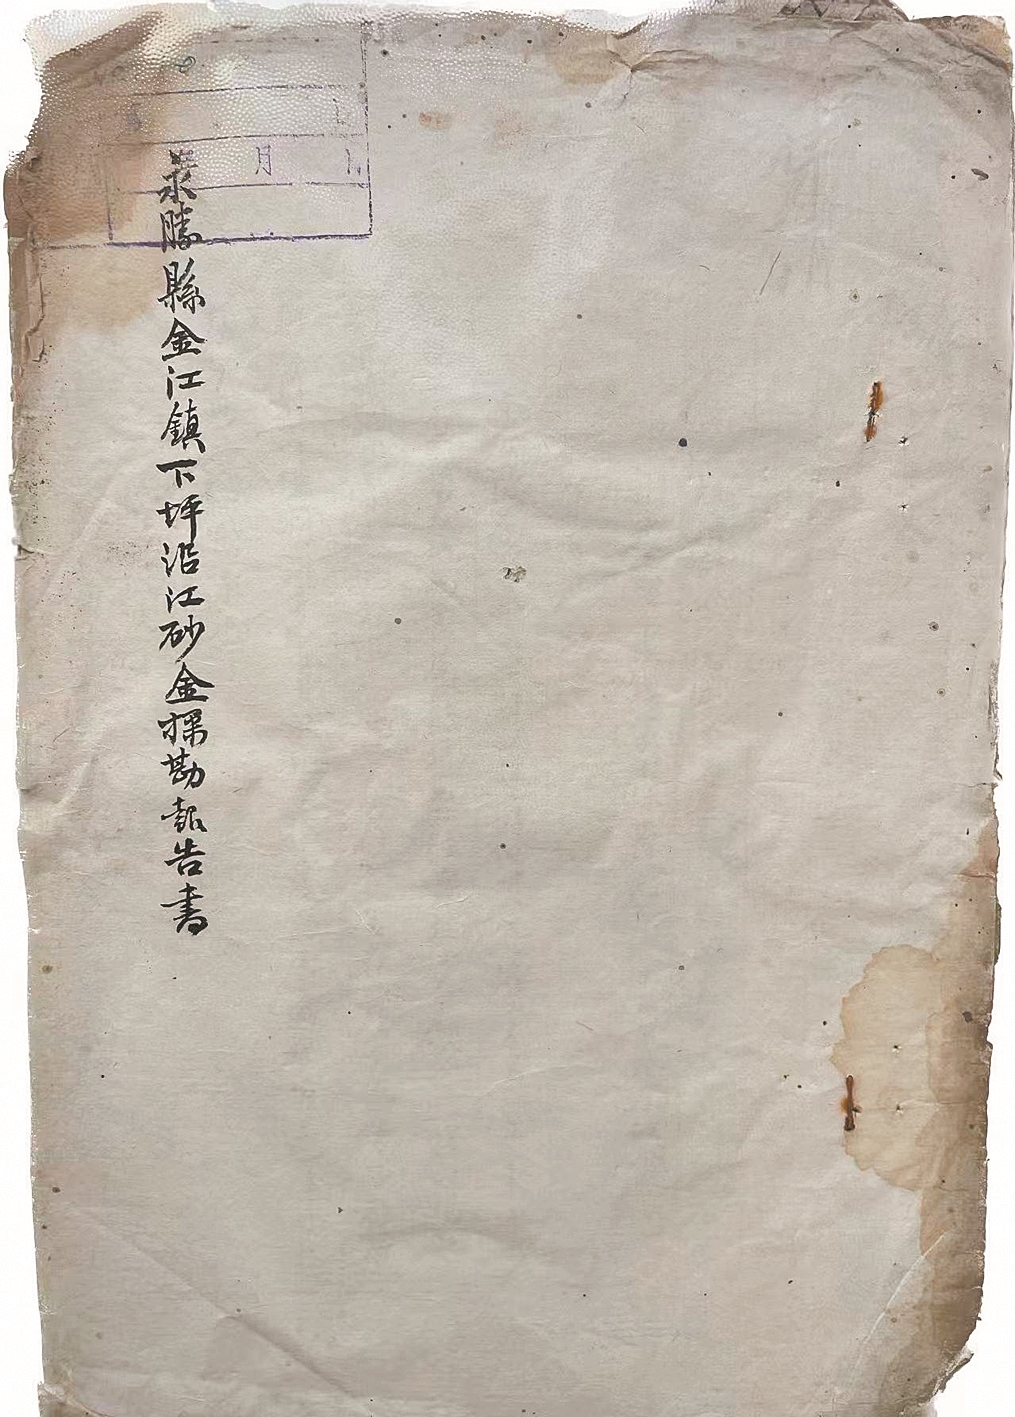 永勝縣金江鎮下坪沿江砂金探勘報告書
月